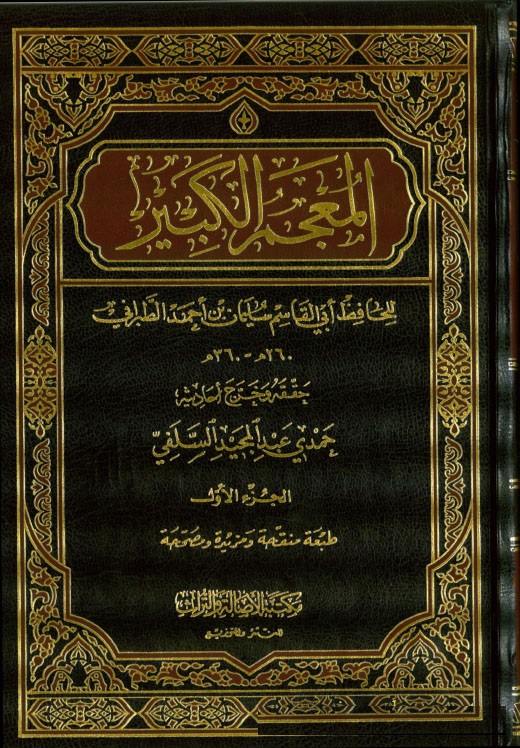 المعجم الكبير
للحافظ أبي القاسم سليمان بن أحمد الطبراني
٢٦٠هـ - ٣٦٠هـ
حققه وخرج أحاديثه
حمدي عبد المجيد السلفي
الجزء الأول
طبعة منقحة ومزيدة ومصححة
مكتبة الأصالة والتراث
للنشر والتوزيع